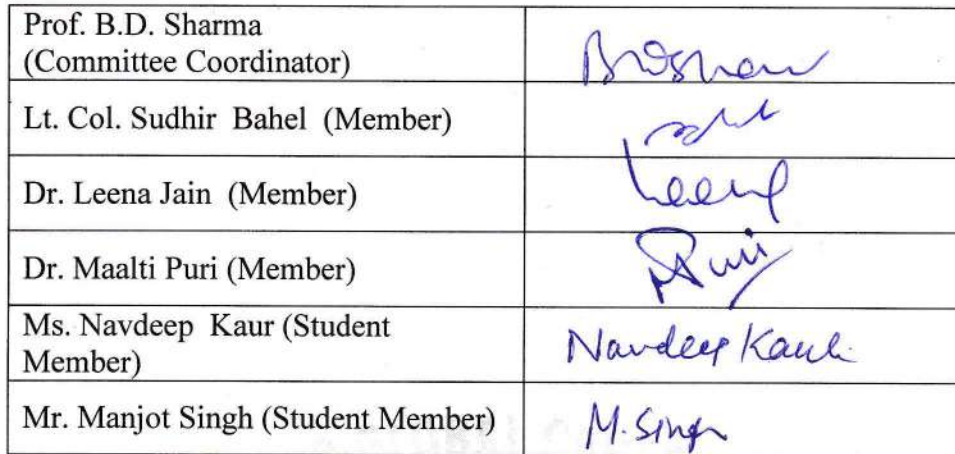 Prof. B.D. Sharma
(Committee Coordinator)
BDSharma
Lt. Col. Sudhir Bahel (Member)
Dr. Leena Jain (Member)
Leena
Dr. Maalti Puri (Member)
MPuri
Ms. Navdeep Kaur (Student
Member)
Navdeep Kaur
Mr. Manjot Singh (Student Member)
M.Singh